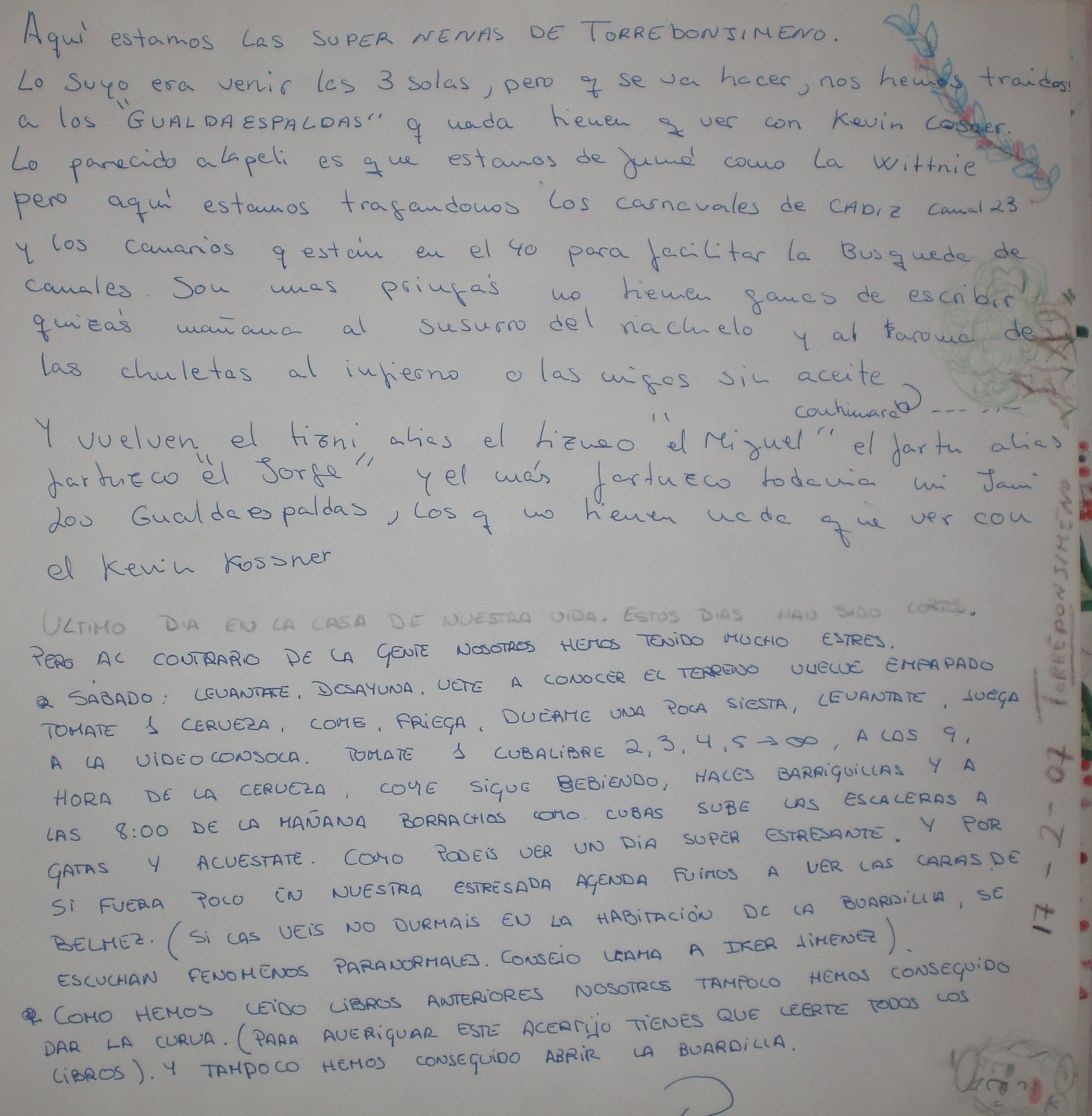 Aquí estamos Las SUPER NENAS DE TORREDONJIMENO.
Lo Suyo era venir las 3 solas, pero q se va hacer, nos hemos traidos!
a los "GUALDAESPALDAS" q nada tienen q ver con Kevin Cosner.
Lo parecido a la peli es que estamos de jumá como La Wittnie
pero aquí estamos tragandonos los carnavales de CADIZ Canal 23
y los canarios q están en el 40 para facilitar la Busqueda de
canales. Son unas pringás no tienen ganas de escribir
quizás mañana al susurro del riachuelo y al aroma de
las chuletas al infierno o las migas sin aceite
continuará -----
Y vuelven, el tizni alias el tizneo "el Miguel" el jartu alias
jartuzco "el Jorge" y el más jartuzco todavia mi Jami
Los Gualdaespaldas, los q no tienen nada que ver con
el Kevin Kossner
ULTIMO DIA EN LA CASA DE NUESTRA VIDA. ESTOS DIAS HAN SIDO CORTOS.
PERO AL CONTRARIO DE LA GENTE NOSOTROS HEMOS TENIDO MUCHO ESTRES.
SÁBADO: LEVANTATE, DESAYUNA, VETE A CONOCER EL TERRENO VUELVE EMPAPADO
TOMATE 1 CERVEZA, COME, FRIEGA, DUERME UNA POCA SIESTA, LEVANTATE, JUEGA
A LA VIDEOCONSOLA. TOMATE 1 CUBALIBRE 2, 3, 4, 5 → ∞, A LAS 9,
HORA DE LA CERVEZA, COME SIGUE BEBIENDO, HACES BARRIGUILLAS Y A
LAS 8:00 DE LA MAÑANA BORRACHOS COMO CUBAS SUBE LAS ESCALERAS A
GATAS Y ACUESTATE. COMO PODEIS VER UN DIA SUPER ESTRESANTE. Y POR
SI FUERA POCO EN NUESTRA ESTRESADA AGENDA FUIMOS A VER LAS CARAS DE
BELMEZ. (SI LAS VEIS NO DURMAIS EN LA HABITACIÓN DE LA BUARDILLA, SE
ESCUCHAN FENOMENOS PARANORMALES. CONSEJO LLAMA A IKER JIMENEZ).
COMO HEMOS LEIDO LIBROS ANTERIORES NOSOTROS TAMPOCO HEMOS CONSEGUIDO
DAR LA CURVA. (PARA AVERIGUAR ESTE ACERTIJO TIENES QUE LEERTE TODOS LOS
LIBROS). Y TAMPOCO HEMOS CONSEGUIDO ABRIR LA BUARDILLA.
17-2-07 TORREDONJIMENO